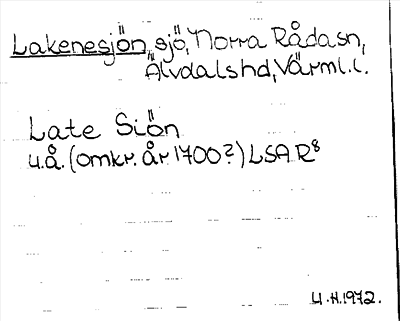 Lakenesjön, sjö, Norra Rådasn,
Älvdalshd, Värml.l.
Late Siön
u.å. (omkr. år 1700?) LSA R8
U.H.1972.